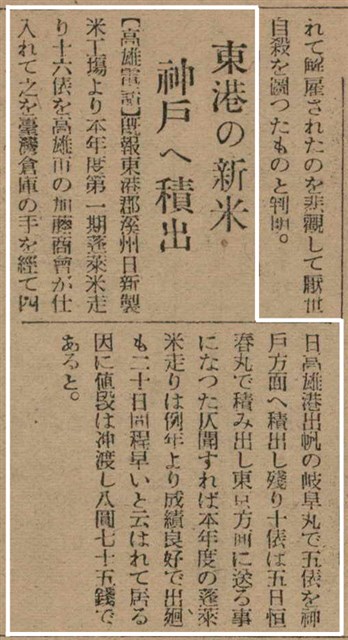 れて解雇されたのを悲観して厭世
自殺を図つたものと判明。
東港の新米
神戸へ積出
【高雄電話】既報東港郡渓州日新製
米工場より本年度第一期蓬莱米走
り十六俵を高雄市の加藤商会が仕
入れて之を台湾倉庫の手を経て四
日高雄港出帆の岐阜丸で五俵を神
戸方面へ積出し残り十俵は五日恒
春丸で積み出し東京方面に送る事
になつた仄聞すれば本年度の蓬莱
米走りは例年より成績良好で出廻
も二十日間程早いと云はれて居る
因に値段は沖渡し八圓七十五銭で
あると。